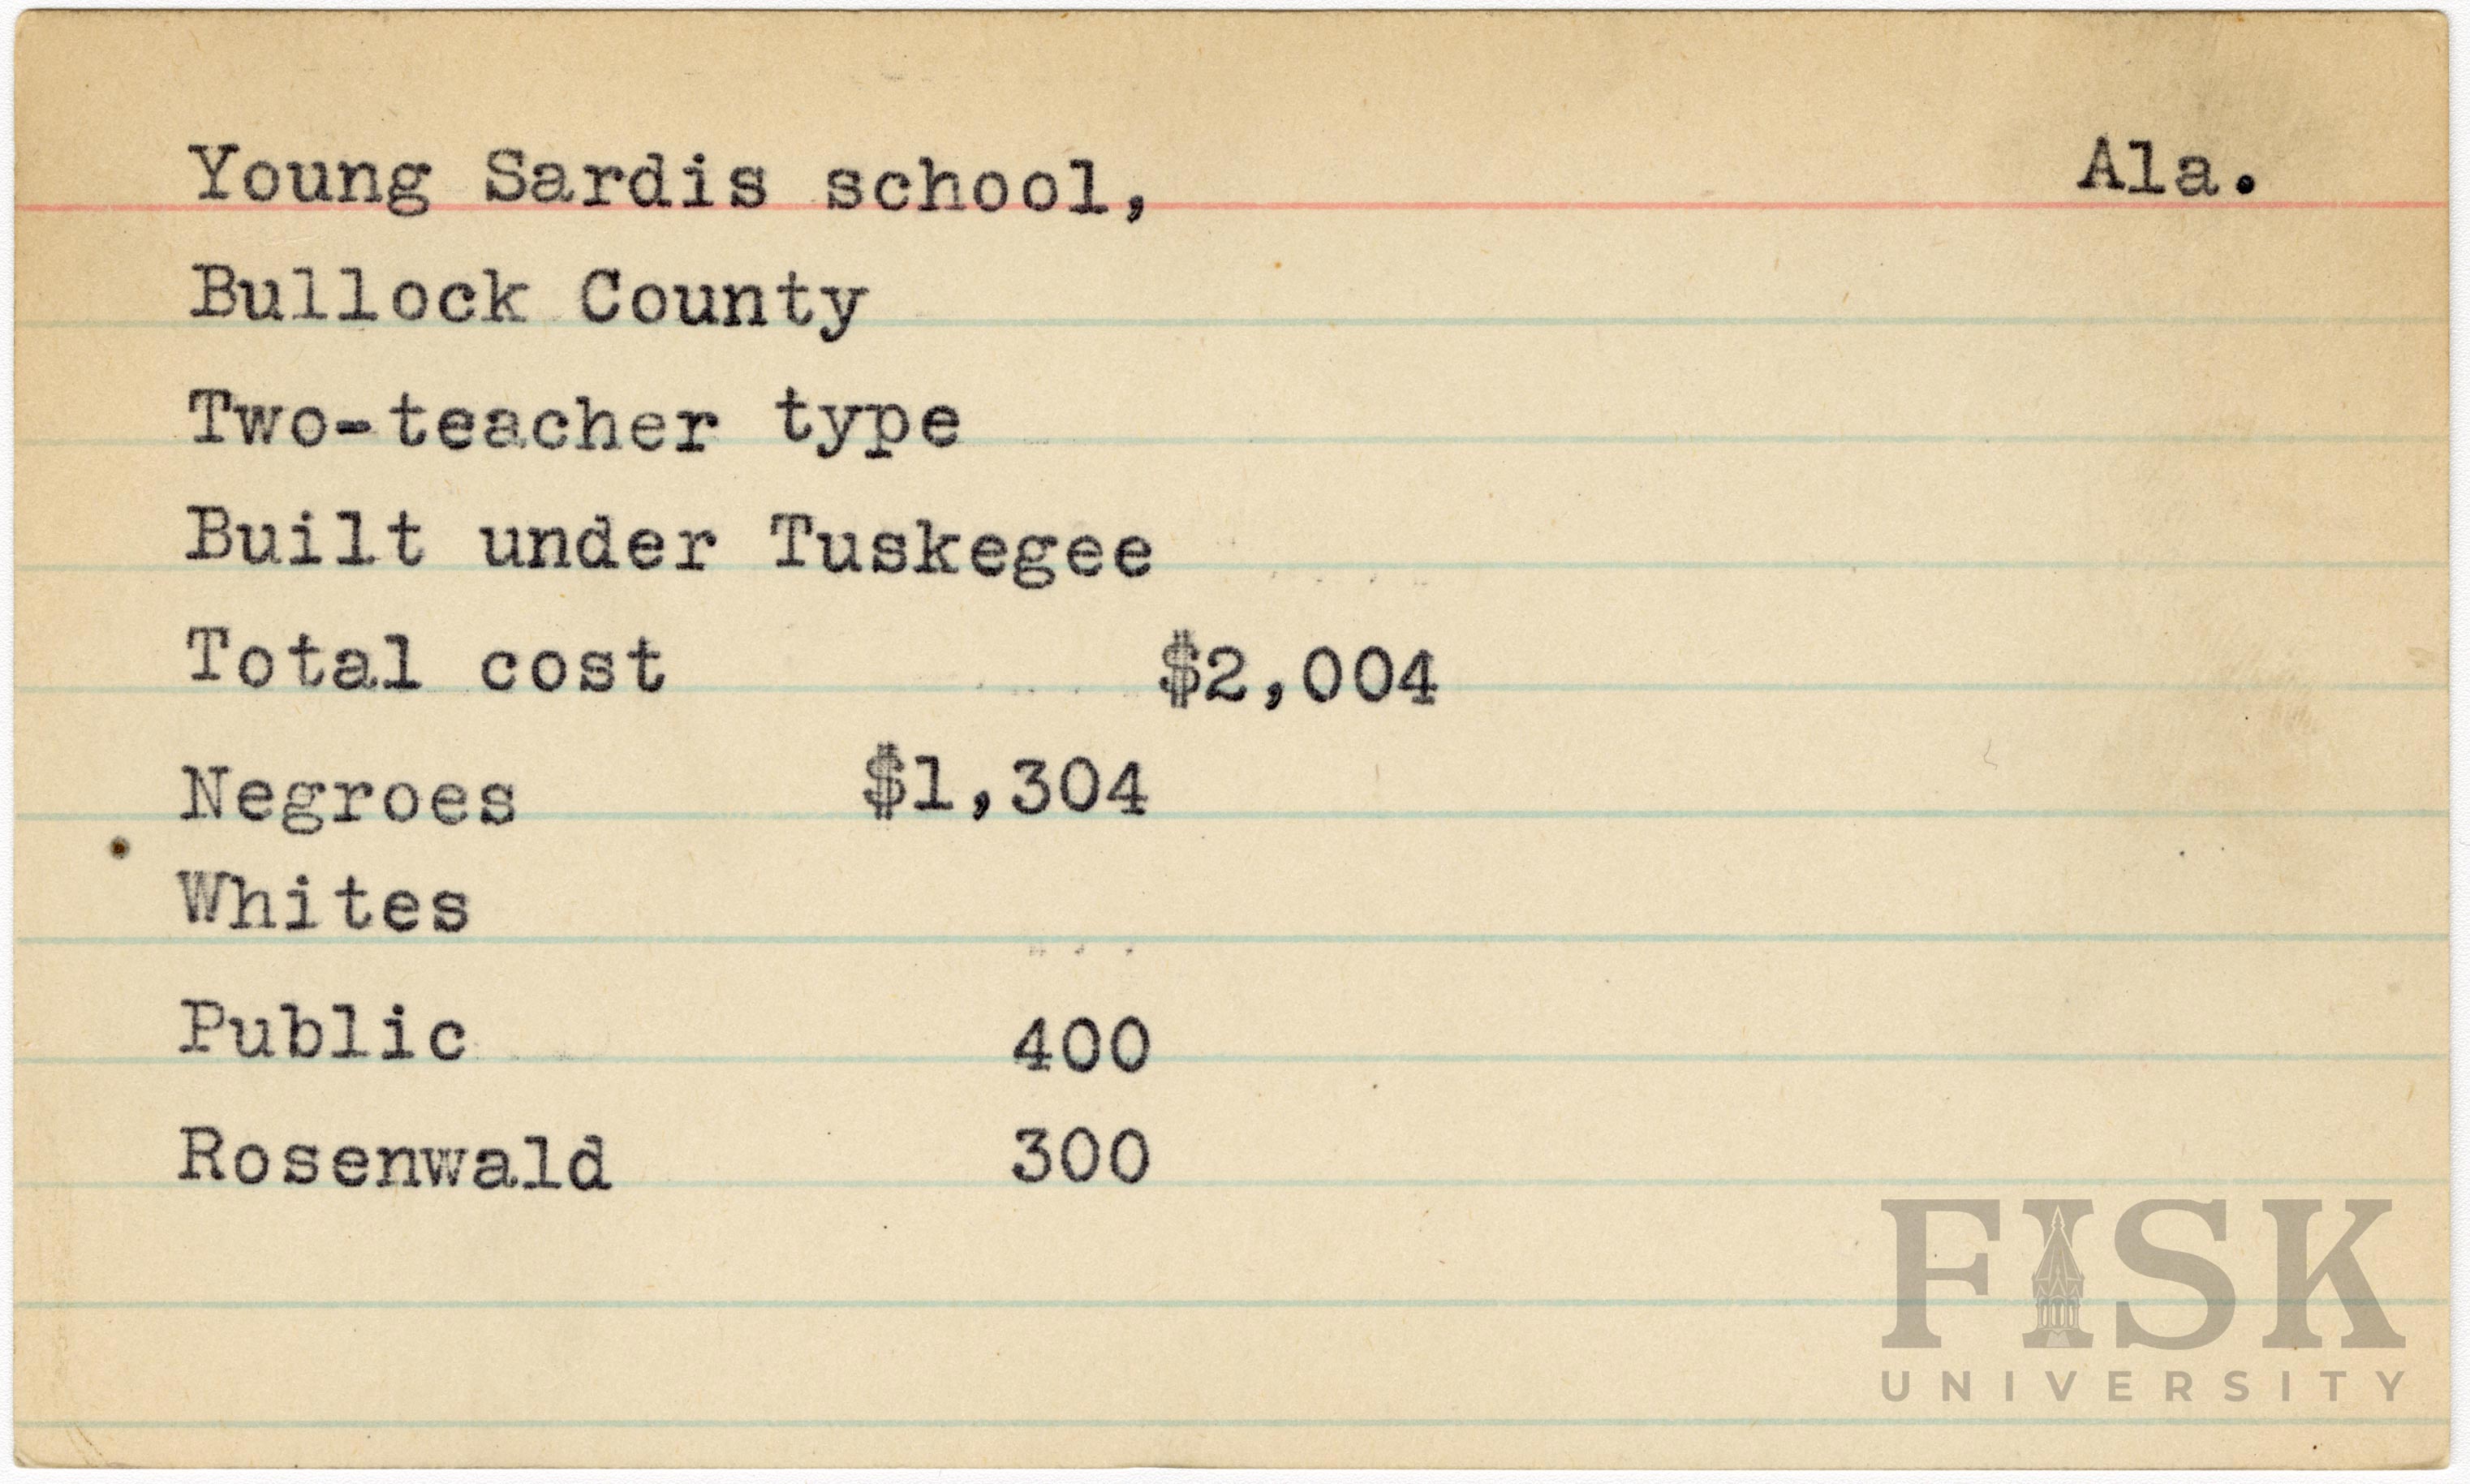 Young Sardis school, Ala.
Bullock County
Two-teacher type
Built under Tuskegee
Total cost $2,004
Negroes $1,304
Whites
Public 400
Rosenwald 300
FISK
UNIVERSITY